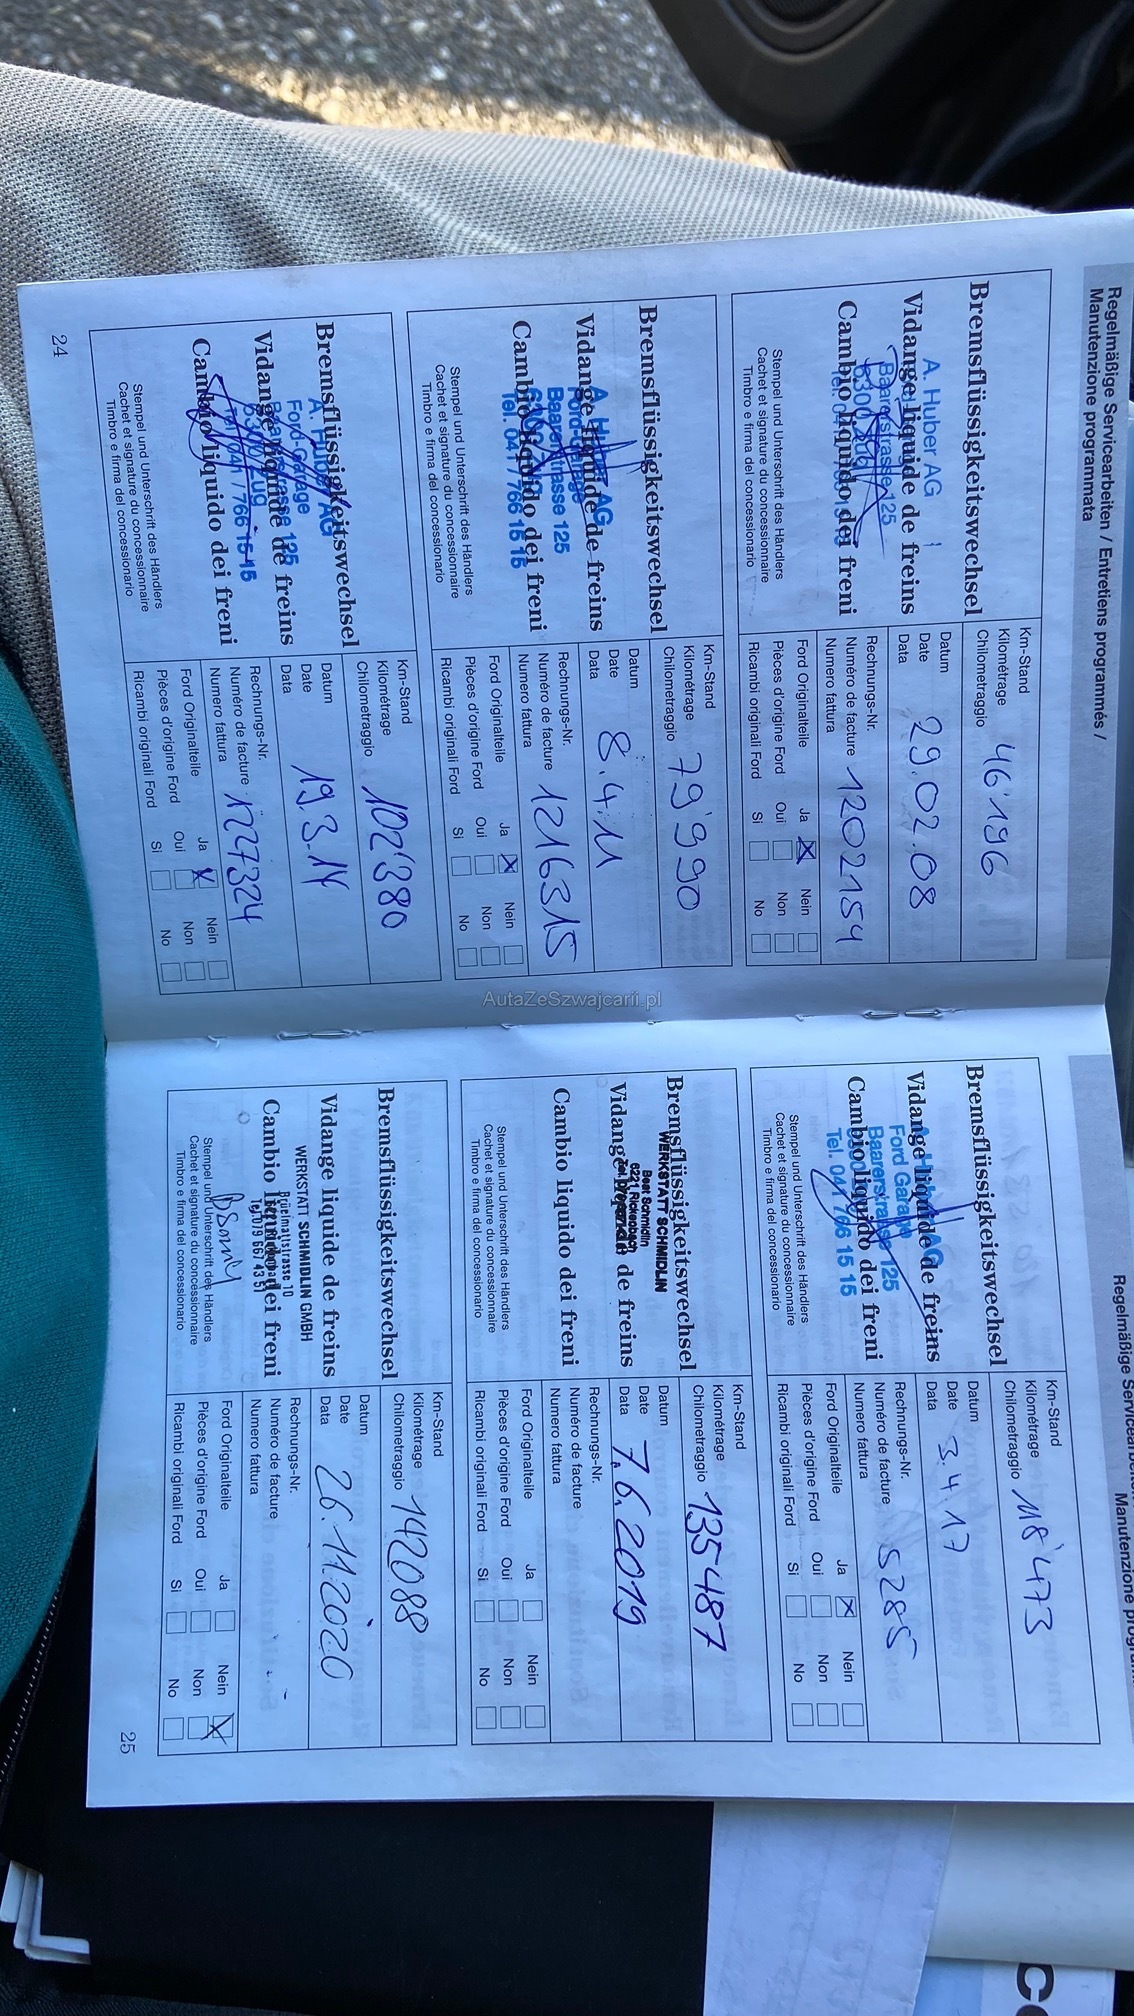 Regelmäßige Servicearbeiten / Entretiens programmés /
Manutenzione programmata
Bremsflüssigkeitswechsel
Vidange liquide de freins
Cambio liquido dei freni
A. Huber AG
Baarerstrasse 125
Stempel und Unterschrift des Händlers
Cachet et signature du concessionnaire
Timbro e firma del concessionario
Km-Stand
Kilométrage
Chilometraggio 46'196
Datum
Date
Data 29.02.08
Rechnungs-Nr.
Numéro de facture
Numero fattura 1202154
Ford Originalteile Ja X Nein
Pièces d'origine Ford Oui Non
Ricambi originali Ford Si No
Bremsflüssigkeitswechsel
Vidange liquide de freins
Cambio liquido dei freni
A. Huber AG
Ford-Garage
Baarerstrasse 125
Tel. 041 / 766 15 15
Stempel und Unterschrift des Händlers
Cachet et signature du concessionnaire
Timbro e firma del concessionario
Km-Stand
Kilométrage
Chilometraggio 79'990
Datum
Date
Data 8.4.11
Rechnungs-Nr.
Numéro de facture
Numero fattura 1216315
Ford Originalteile Ja X Nein
Pièces d'origine Ford Oui Non
Ricambi originali Ford Si No
Bremsflüssigkeitswechsel
Vidange liquide de freins
Cambio liquido dei freni
A. Huber AG
Ford-Garage
Baarerstrasse 125
6300 Zug
Tel. 041 / 766 15 15
Stempel und Unterschrift des Händlers
Cachet et signature du concessionnaire
Timbro e firma del concessionario
Km-Stand
Kilométrage
Chilometraggio 102'380
Datum
Date
Data 19.3.14
Rechnungs-Nr.
Numéro de facture
Numero fattura 1227324
Ford Originalteile Ja X Nein
Pièces d'origine Ford Oui Non
Ricambi originali Ford Si No
24
AutaZeSzwajcarii.pl
Regelmäßige Servicearbeiten
Manutenzione
Bremsflüssigkeitswechsel
Vidange liquide de freins
Cambio liquido dei freni
Ford Garage
Baarerstrasse 125
Tel. 041 766 15 15
Stempel und Unterschrift des Händlers
Cachet et signature du concessionnaire
Timbro e firma del concessionario
Km-Stand
Kilométrage
Chilometraggio 118'473
Datum
Date
Data 3.4.17
Rechnungs-Nr.
Numéro de facture
Numero fattura 5285
Ford Originalteile Ja X Nein
Pièces d'origine Ford Oui Non
Ricambi originali Ford Si No
Bremsflüssigkeitswechsel
Vidange liquide de freins
Cambio liquido dei freni
WERKSTATT SCHMIDLIN
Beat Schmidlin
6221 Rickenbach
Stempel und Unterschrift des Händlers
Cachet et signature du concessionnaire
Timbro e firma del concessionario
Km-Stand
Kilométrage
Chilometraggio 135487
Datum
Date
Data 7.6.2019
Rechnungs-Nr.
Numéro de facture
Numero fattura
Ford Originalteile Ja Nein
Pièces d'origine Ford Oui Non
Ricambi originali Ford Si No
Bremsflüssigkeitswechsel
Vidange liquide de freins
Cambio liquido dei freni
WERKSTATT SCHMIDLIN GMBH
Tel. 079 667 43 51
Stempel und Unterschrift des Händlers
Cachet et signature du concessionnaire
Timbro e firma del concessionario
Km-Stand
Kilométrage
Chilometraggio 142088
Datum
Date
Data 26.11.2020
Rechnungs-Nr.
Numéro de facture
Numero fattura
Ford Originalteile Ja Nein X
Pièces d'origine Ford Oui Non
Ricambi originali Ford Si No
25